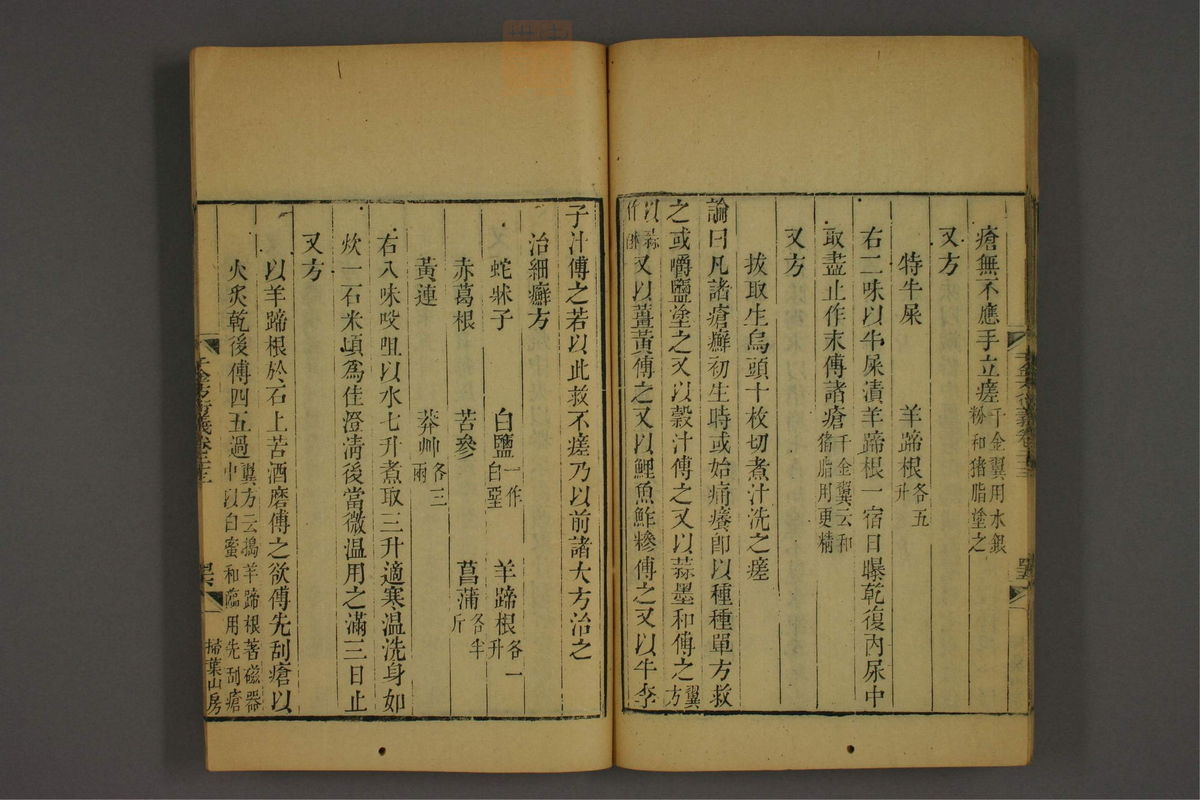 瘡無不應手立瘥千金翼用水銀粉和猪脂塗之
又方
特牛屎 羊蹄根各五升
右二味以牛屎漬羊蹄根一宿日曝乾復內尿中
取盡止作末傅諸瘡千金翼云和猪脂用更精
又方
拔取生烏頭十枚切煮汁洗之瘥
論曰凡諸瘡癬初生時或始痛癢卽以種種單方救
之或嚼鹽塗之又以穀汁傅之又以蒜墨和傅之翼方
以蒜作酥又以薑黃傅之又以鯉魚鮓糝傅之又以牛李
子汁傅之若以此救不瘥乃以前諸大方治之
治細癬方
蛇牀子 白鹽一作白堊 羊蹄根各一升
赤葛根 苦參 菖蒲各半斤
黃連 莽艸各三兩
右八味㕮咀以水七升煮取三升適寒温洗身如
炊一石米頃為佳澄清後當微温用之滿三日止
又方
以羊蹄根於石上苦酒磨傅之欲傅先刮瘡以
火炙乾後傅四五過翼方云搗羊蹄根著磁器中以白蜜和臨用先刮瘡
掃葉山房